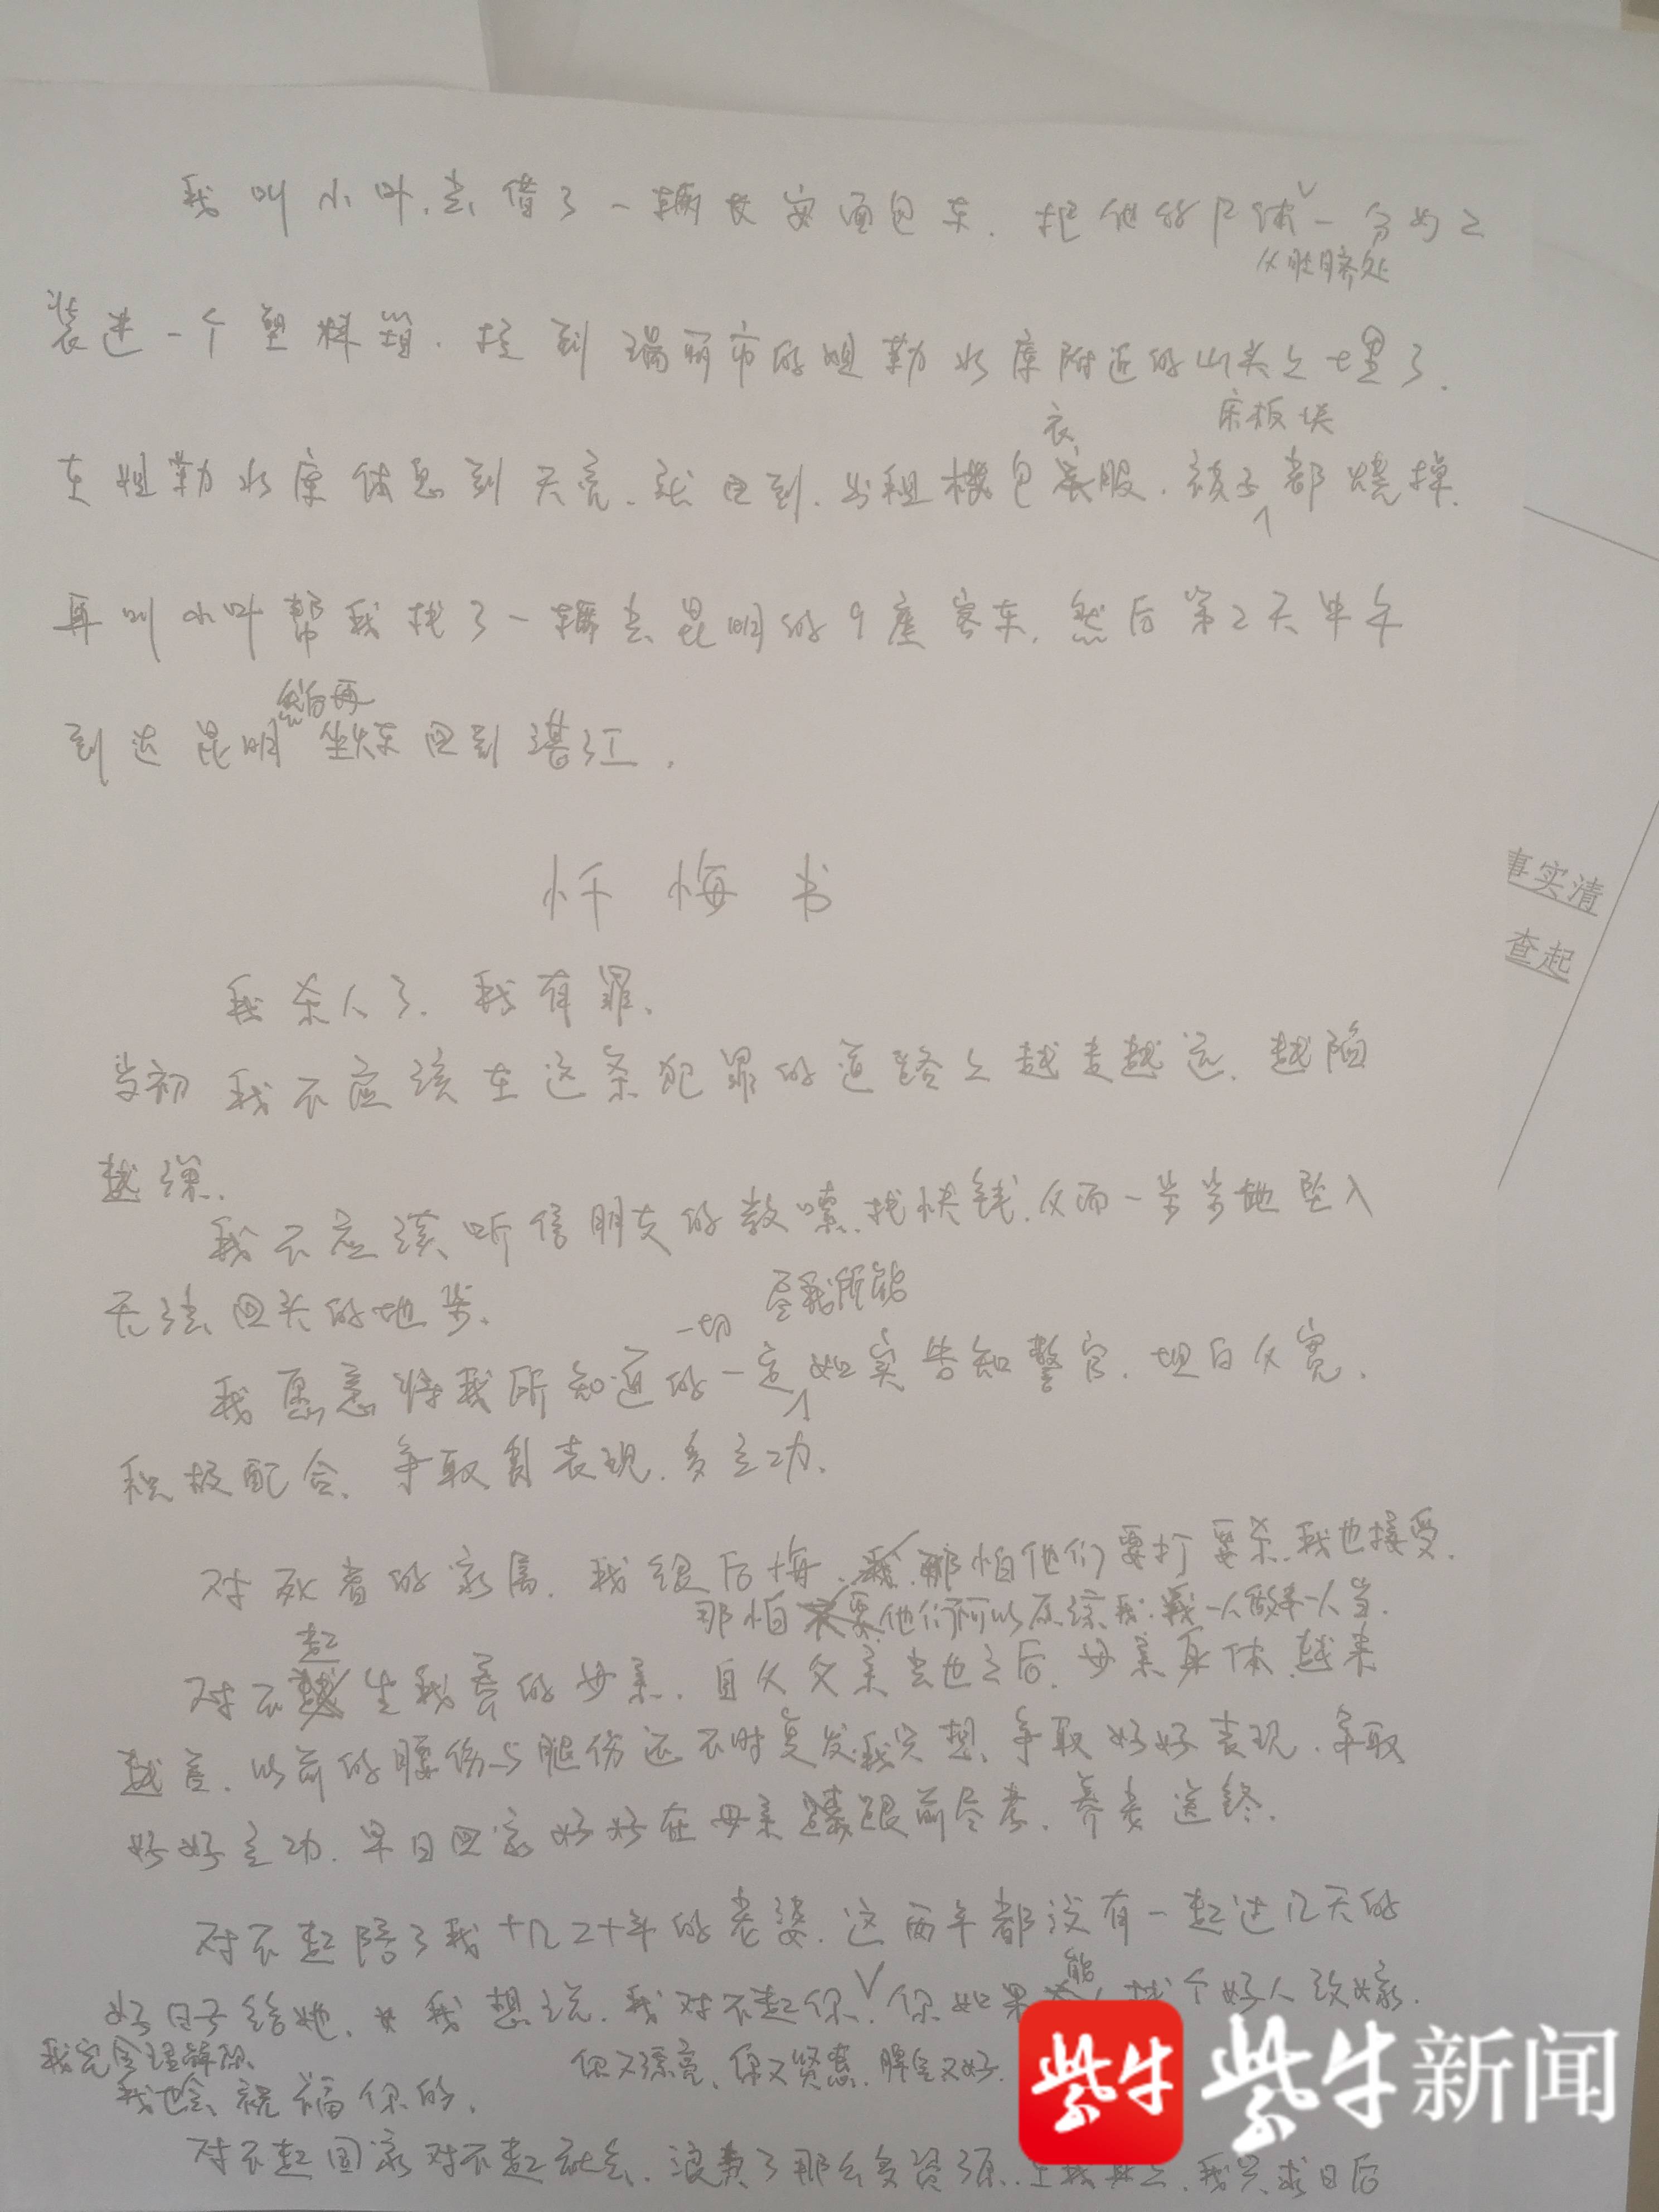 我叫小叶去借了一辆长安面包车.把他的尸体一分为二
从肚脐处
装进一个塑料箱.拉到瑞丽市的姐勒水库附近的山头上埋了.
衣 床板块
在姐勒水库休息到天亮.就回到.出租楼包衣服.被子都烧掉.
再叫小叶帮我找了一辆去昆明的9座客车.然后第2天中午
然后再
到达昆明坐火车回到湛江.
忏悔书
我杀人了.我有罪.
当初我不应该在这条犯罪的道路上越走越远.越陷
越深.
我不应该听信朋友的教唆.找快钱.从而一步步地坠入
无法回头的地步.
一切 尽我所能
我愿意将我所知道的一定如实告知警官.坦白从宽.
积极配合.争取表现.多立功.
对死者的家属.我很后悔.那怕他们要打要杀.我也接受.
那怕要他们可以原谅我.我一人做事一人当.
起
对不生我养的母亲.自从父亲去世之后.母亲身体越来
越差.以前的腰伤与腿伤还不时复发.我只想争取好好表现.争取
好好立功.早日回家好好在母亲跟前尽孝.养老送终.
对不起陪了我十几二十年的老婆.这两年都没有一起过几天的
能
好日子给她.我想说.我对不起你.你如果找个好人改嫁.
我完全理解你. 你又漂亮.你又贤惠.脾气又好.
我也会祝福你的.
对不起国家对不起社会.浪费了那么多资源.在我身上.我只求日后
事实清
查起
紫牛
紫牛新闻